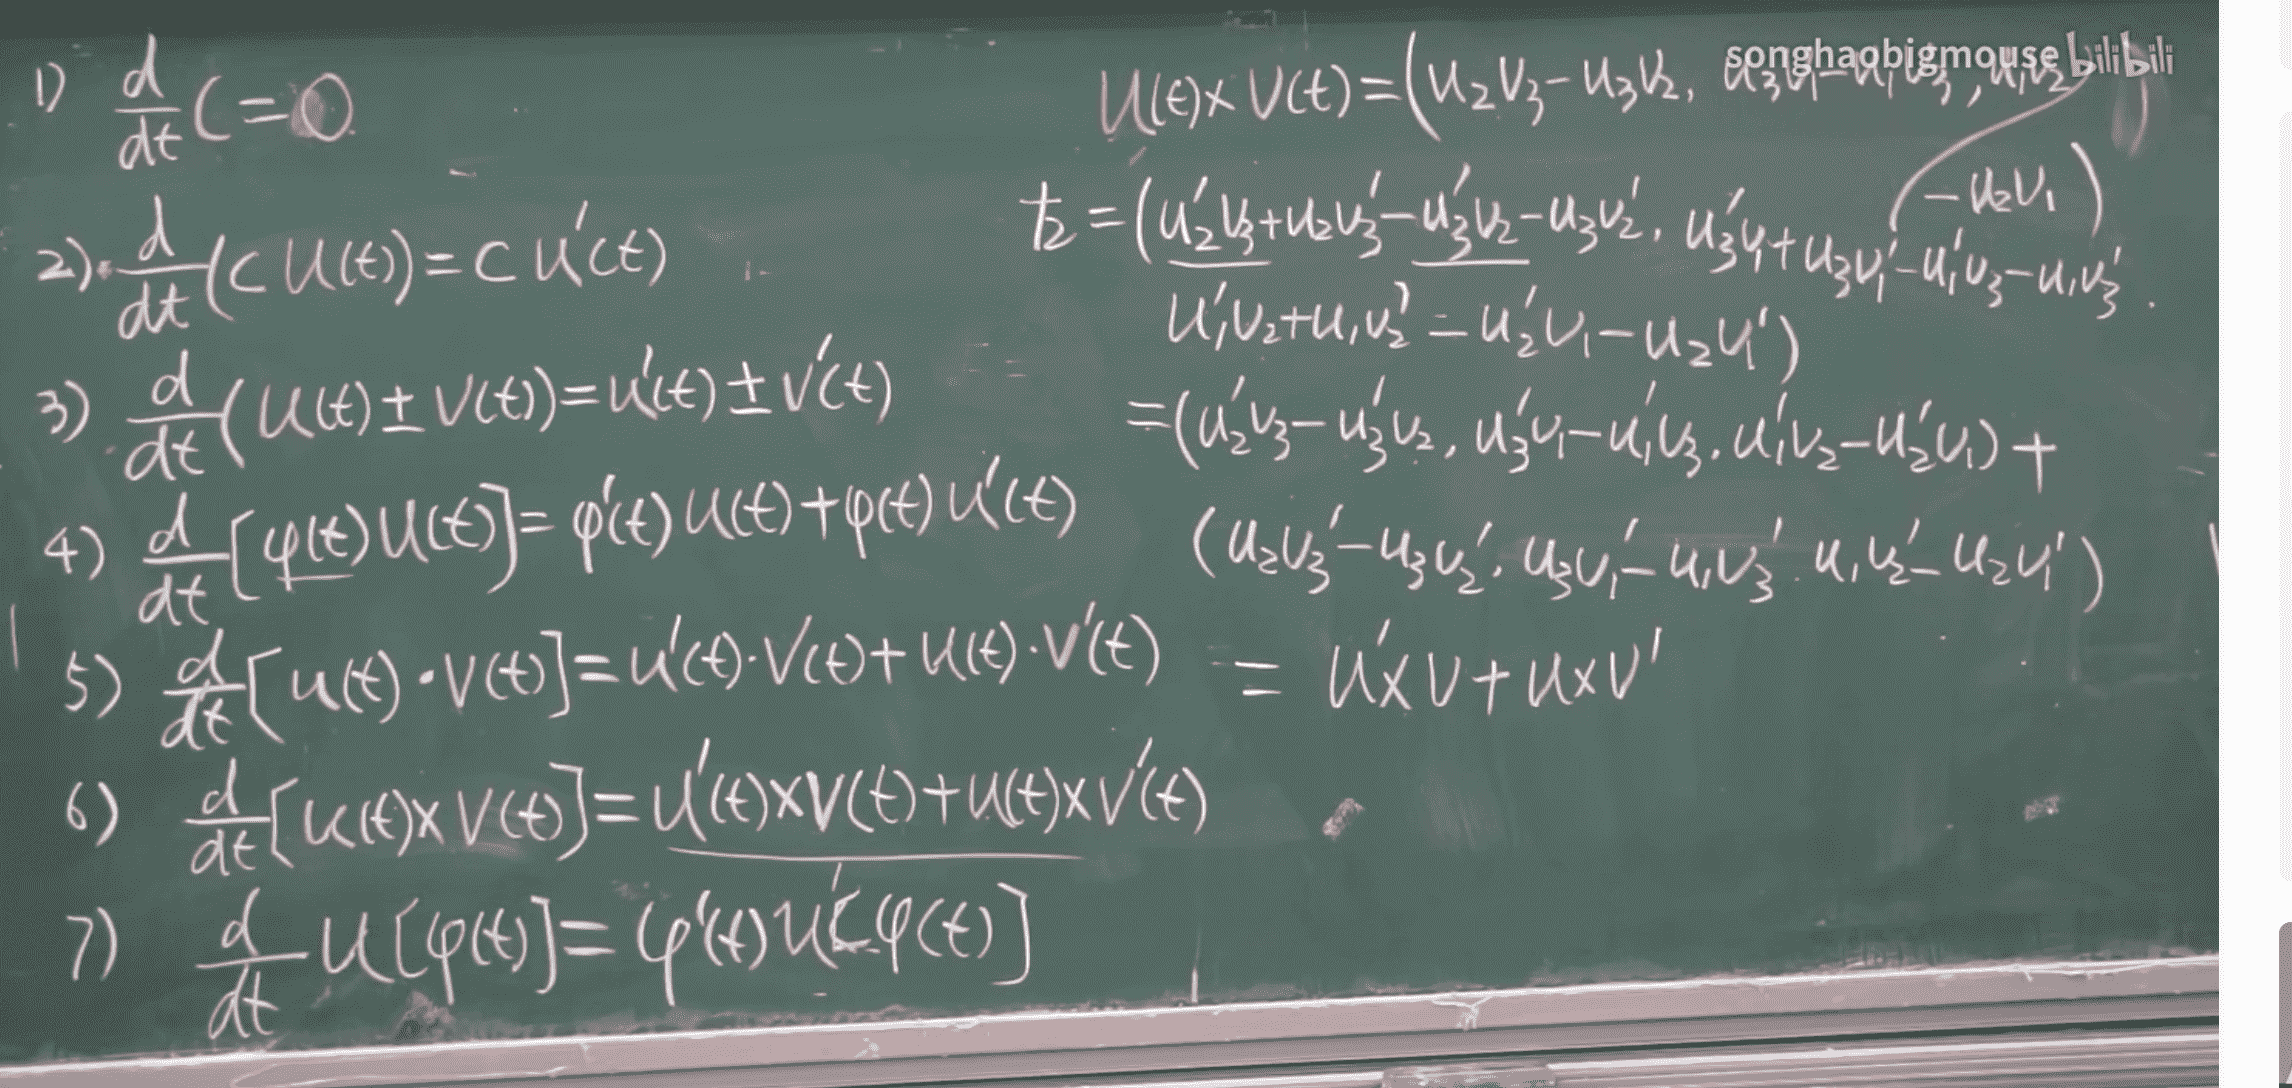 1) d/dt C = 0
2) d/dt (C U(t)) = C U'(t)
3) d/dt (U(t) ± V(t)) = U'(t) ± V'(t)
4) d/dt [φ(t) U(t)] = φ'(t) U(t) + φ(t) U'(t)
5) d/dt [u(t) · V(t)] = u'(t) · V(t) + U(t) · V'(t)
6) d/dt [u(t) × V(t)] = U'(t) × V(t) + U(t) × V'(t)
7) d/dt U[φ(t)] = φ'(t) U'[φ(t)]
songhaobigmouse bilibili
U(t) × V(t) = (u₂v₃ - u₃v₂, u₃v₁ - u₁v₃, u₁v₂
- u₂v₁)
左 = (u₂'v₃ + u₂v₃' - u₃'v₂ - u₃v₂', u₃'v₁ + u₃v₁' - u₁'v₃ - u₁v₃'.
u₁'v₂ + u₁v₂' - u₂'v₁ - u₂v₁')
= (u₂'v₃ - u₃'v₂, u₃'v₁ - u₁'v₃, u₁'v₂ - u₂'v₁) +
(u₂v₃' - u₃v₂', u₃v₁' - u₁v₃', u₁v₂' - u₂v₁')
= u' × v + u × v'